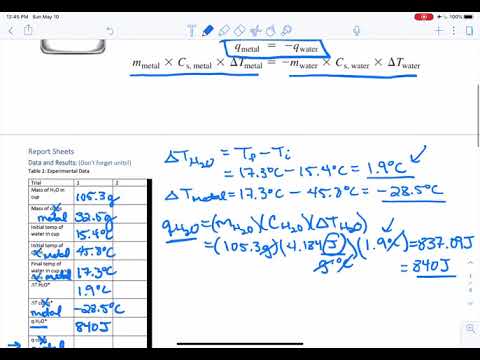 12:45 PM Sun May 10
61%
q metal = −q water
m metal × C s, metal × ΔT metal = −m water × C s, water × ΔT water
Report Sheets
Data and Results: (Don't forget units!)
Table 1: Experimental Data
Trial 1 2
Mass of H₂O in cup 105.3g
Mass of metal 32.5g
Initial temp of water in cup 15.4°C
Initial temp of metal 45.8°C
Final temp of water in cup metal 17.3°C
ΔT H₂O* 1.9°C
ΔT metal -28.5°C
q H₂O* 840J
ΔT H₂O = Tf − Ti
= 17.3°C − 15.4°C = 1.9°C
ΔT metal = 17.3°C − 45.8°C = −28.5°C
q H₂O = (m H₂O)(C H₂O)(ΔT H₂O)
= (105.3g)(4.184 J/g·°C)(1.9°C) = 837.09J
= 840J